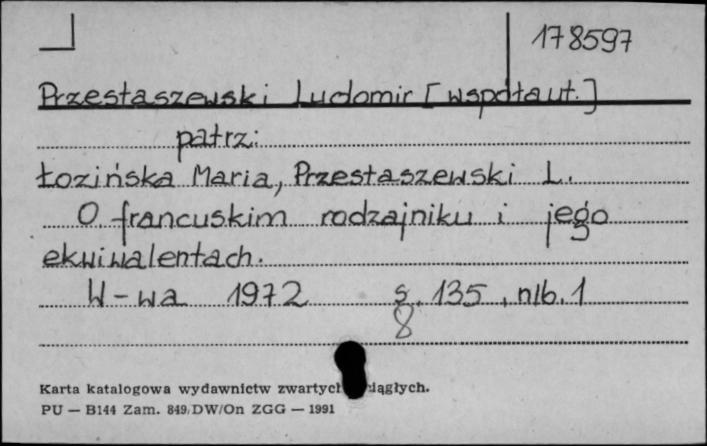 178597
Przestaszewski Ludomir [współaut.]
patrz:
Łozińska Maria, Przestaszewski L.
O francuskim rodzajniku i jego
ekwiwalentach.
W-wa 1972 s. 135, nlb. 1
8
Karta katalogowa wydawnictw zwartych ciągłych.
PU — B144 Zam. 849/DW/On ZGG — 1991